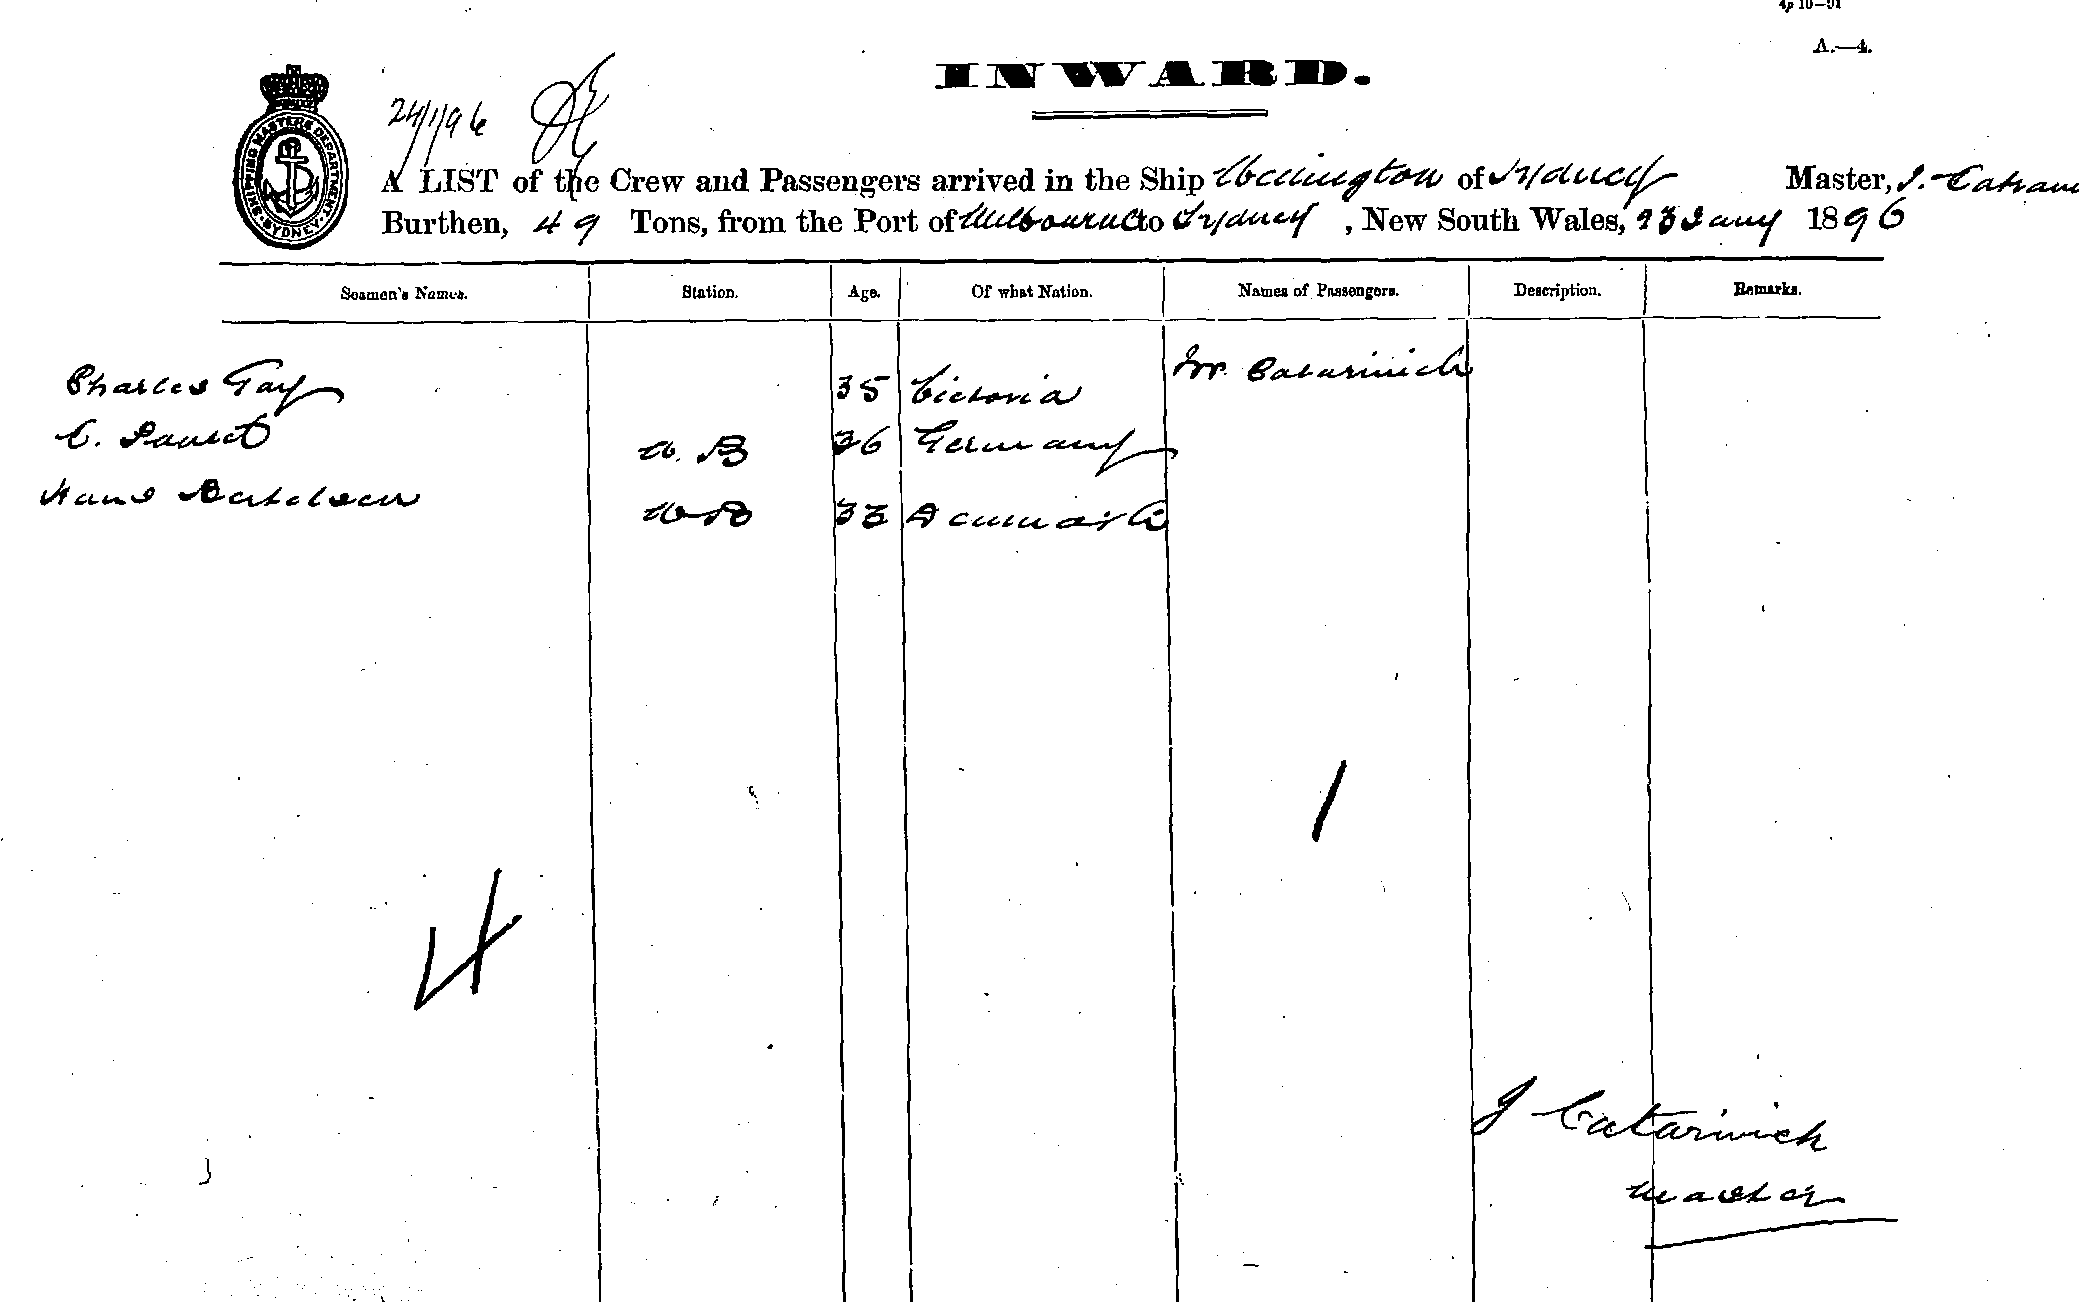 4p 10—91
A.—4.
INWARD.
24/1/96
SHIPPING MASTERS DEPARTMENT SYDNEY
A LIST of the Crew and Passengers arrived in the Ship Wellington of Sydney Master, J.
Burthen, 49 Tons, from the Port of Melbourne to Sydney, New South Wales, 23 Jany 1896
Seamen's Names. Station. Age. Of what Nation. Names of Passengers. Description. Remarks.
Mr. Catarinich
Charles Gay 35 Victoria
C. A. B 36 Germany
Hans Bertelsen A B 33 Denmark
1
4
J Catarinich
Master